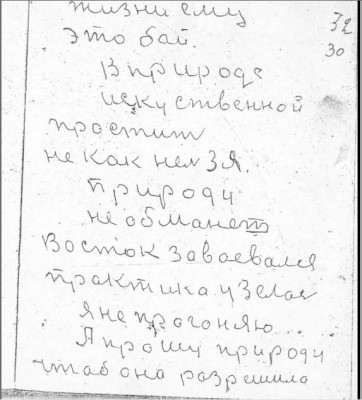 жизни ему
32
это бай.
30
в природе
искуственной
простит
не как нельзя.
природу
необманет
Восток завоевался
практика узелов
я не прогоняю...
Я прошу природу
чтаб она разрешила